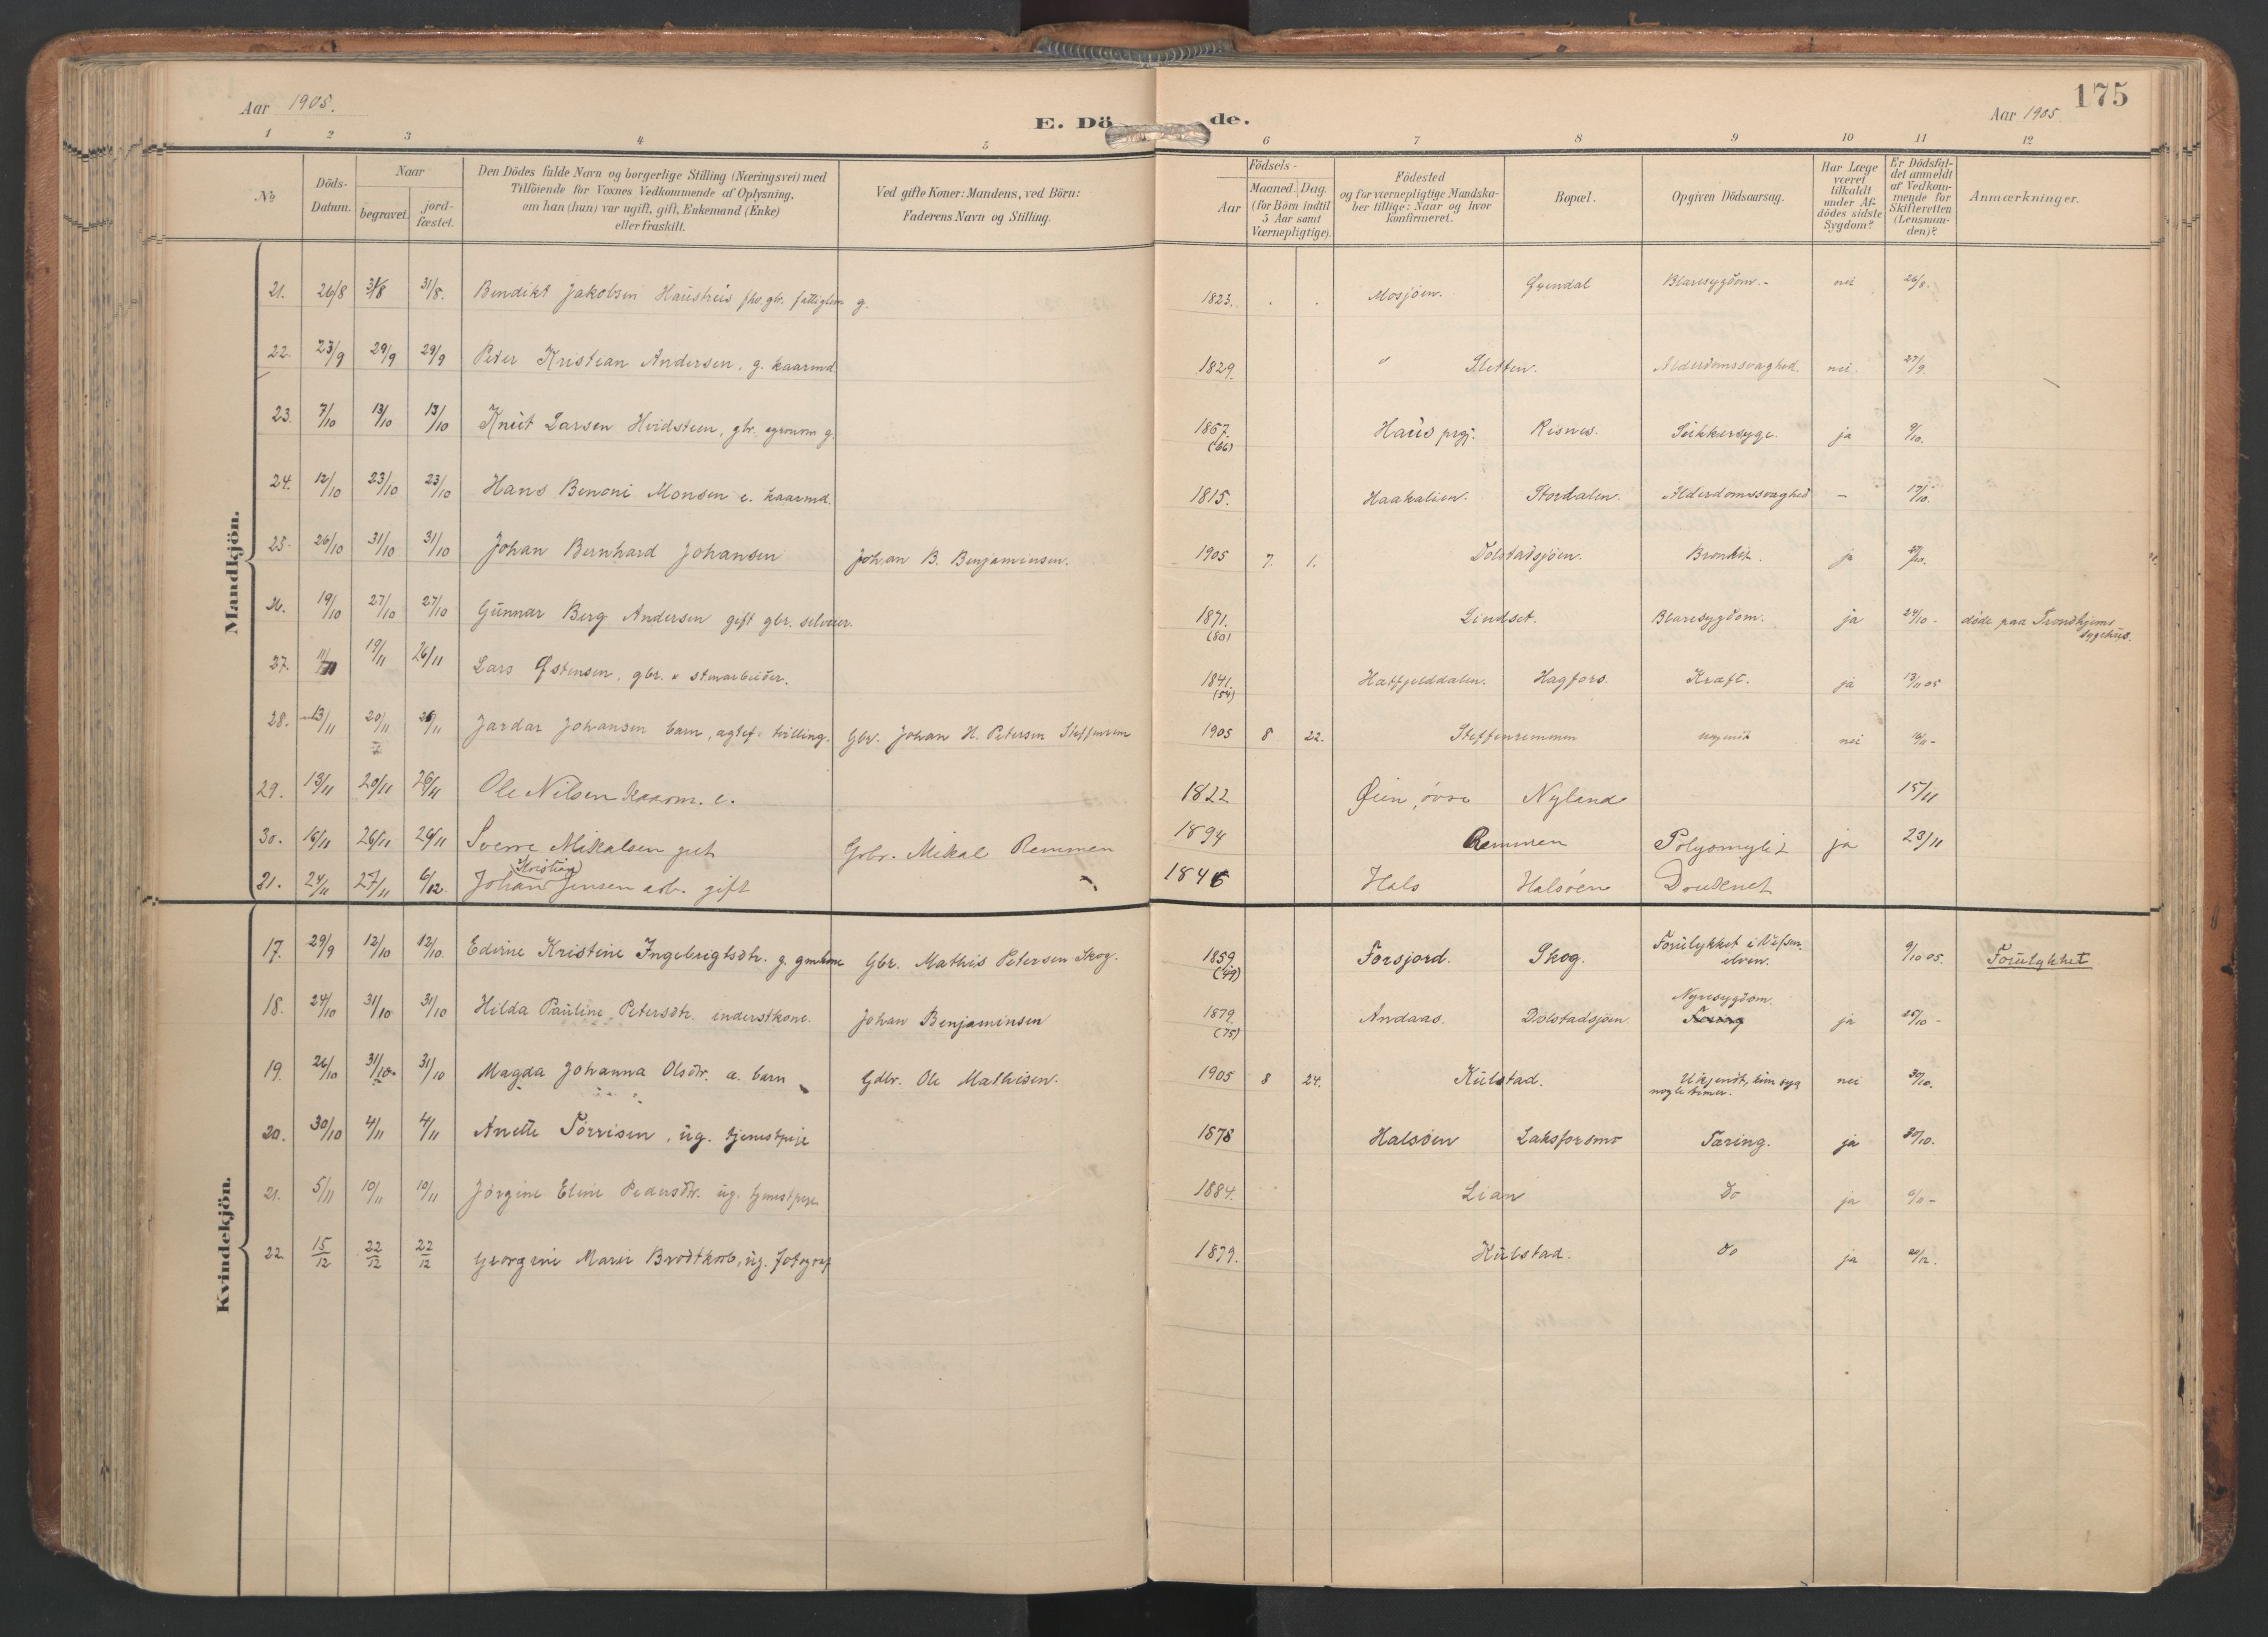 Aar 1905.
E. Dö de.
Aar 1905.
175
1 2 3 4 5 6 7 8 9 10 11 12
№
Döds-Datum.
Naar
begravet.
jord-fæstet.
Den Dödes fulde Navn og borgerlige Stilling (Næringsvei) med
Tilföiende for Voxnes Vedkommende af Oplysning,
om han (hun) var ugift, gift, Enkemand (Enke)
eller fraskilt.
Ved gifte Koner: Mandens, ved Börn:
Faderens Navn og Stilling.
Födsels-
Aar
Maaned. Dag.
(for Börn indtil
5 Aar samt
Værnepligtige).
Födested
og for værnepligtige Mandska-
ber tillige: Naar og hvor
konfirmeret.
Bopæl.
Opgiven Dödsaarsag.
Har Læge
været
tilkaldt
under Af-
dödes sidste
Sygdom?
Er Dödsfal-
det anmeldt
af Vedkom-
mende for
Skifteretten
(Lensman-
den)?
Anmærkninger.
Mandkjön.
21. 26/8 31/8 31/8. Bendikt Jakobsen Haustreis fhv. gbr. fattiglem g. 1823. Mosjöen. Blæresygdom. nei 26/8.
22. 23/9 29/9 29/9 Peter Kristian Andersen, g. kaarmd 1829. " Sletten. Alderdomssvaghed. nei. 27/9.
23. 7/10 13/10 13/10 Knut Larsen Hvidsteen, gbr. agronom g. 1867. (66) Haus prgj. Risnes. Sukkersyge. ja 9/10.
24. 12/10 23/10 23/10 Hans Benoni Monsen e. kaarmd. 1815. Haakalien. Stordalen. Alderdomssvaghed – 17/10.
25. 26/10 31/10 31/10 Johan Bernhard Johansen Johan B. Benjaminsen. 1905 7. 1. Dolstadsjöen. Bronkit. ja
26. 19/10 27/10 27/10 Gunnar Berg Andersen gift gbr. selveier. 1871. (80) Lindset. Blæresygdom. ja 24/10 - döde paa Trondhjems sygehus.
27. 11/11 19/11 26/11 Lars Østensen, gbr. & stenarbeider. 1841. (54) Hatfjelddalen. Hagfors. Kræft. ja 13/11 05
28. 13/11 20/11 26/11 Jardar Johansen barn, ægtef. tvilling. Gbr. Johan H. Petersen Steffenrem 1905 8 22. Steffenremmen nei 16/11 -
29. 13/11 20/11 26/11 Ole Nilsen kaarm. e. 1822 Øien, övre Nyland 15/11
30. 16/11 26/11 26/11 Sverre Mikalsen gut Grbr. Mikal Remmen 1894 Remmen Polyomyelit ja 23/11
31. 24/11 27/11 6/12. Johan Kristian Jensen arb. gift 1846 Hals Halsöen Druknet
Kvindekjön.
17. 29/9 12/10 12/10. Edvine Kristine Ingebrigtsdtr. g. gmkone Gbr. Mathis Petersen Skog. 1859. (49) Forsjord. Skog. Forulykket i Vefsn-elven. 9/10 05. Forulykket
18. 24/10 31/10 31/10 Hilda Pauline Petersdtr. inderstkone. Johan Benjaminsen 1879. (75) Andaas. Dolstadsjöen. Nyresygdom. Tæring ja 25/10 -
19. 26/10 31/10. 31/10 Magda Johanna Olsdtr. æ. barn Gdbr. Ole Mathisen. 1905 8 24. Kulstad. Ukjendt, kun syg nogle timer. nei 30/10.
20. 30/10 4/11 4/11 Anette Törrisen, ug. tjenestpige 1878 Halsöen Laksforsmo Tæring. ja 30/10.
21. 5/11 10/11 10/11 Jörgine Eline Pedersdtr. ug. tjenestpige 1884. Lian do ja 6/11 -
22 15/12 22/12 22/12 Georgine Marie Brodtkorb, ug. fotograf 1879. Kulstad. do ja 20/12.